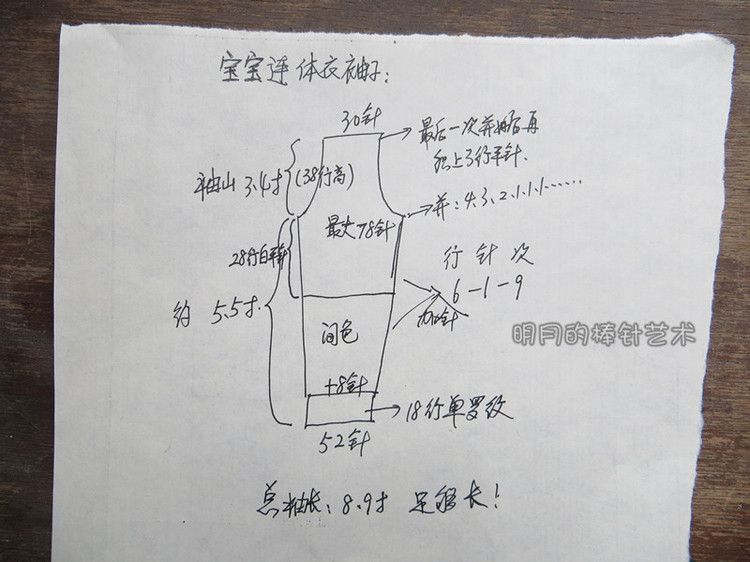 宝宝连体衣袖子:
30针
最后一次并收后再
织上3行平针.
袖山 3.4寸
(38行高)
并: 4.3.2.1.1.1......
最大78针
28行白平针
行 针 次
6-1-9
加针
约 5.5寸
间色
明月的棒针艺术
+8针
18行单罗纹
52针
总袖长: 8.9寸 足够长!